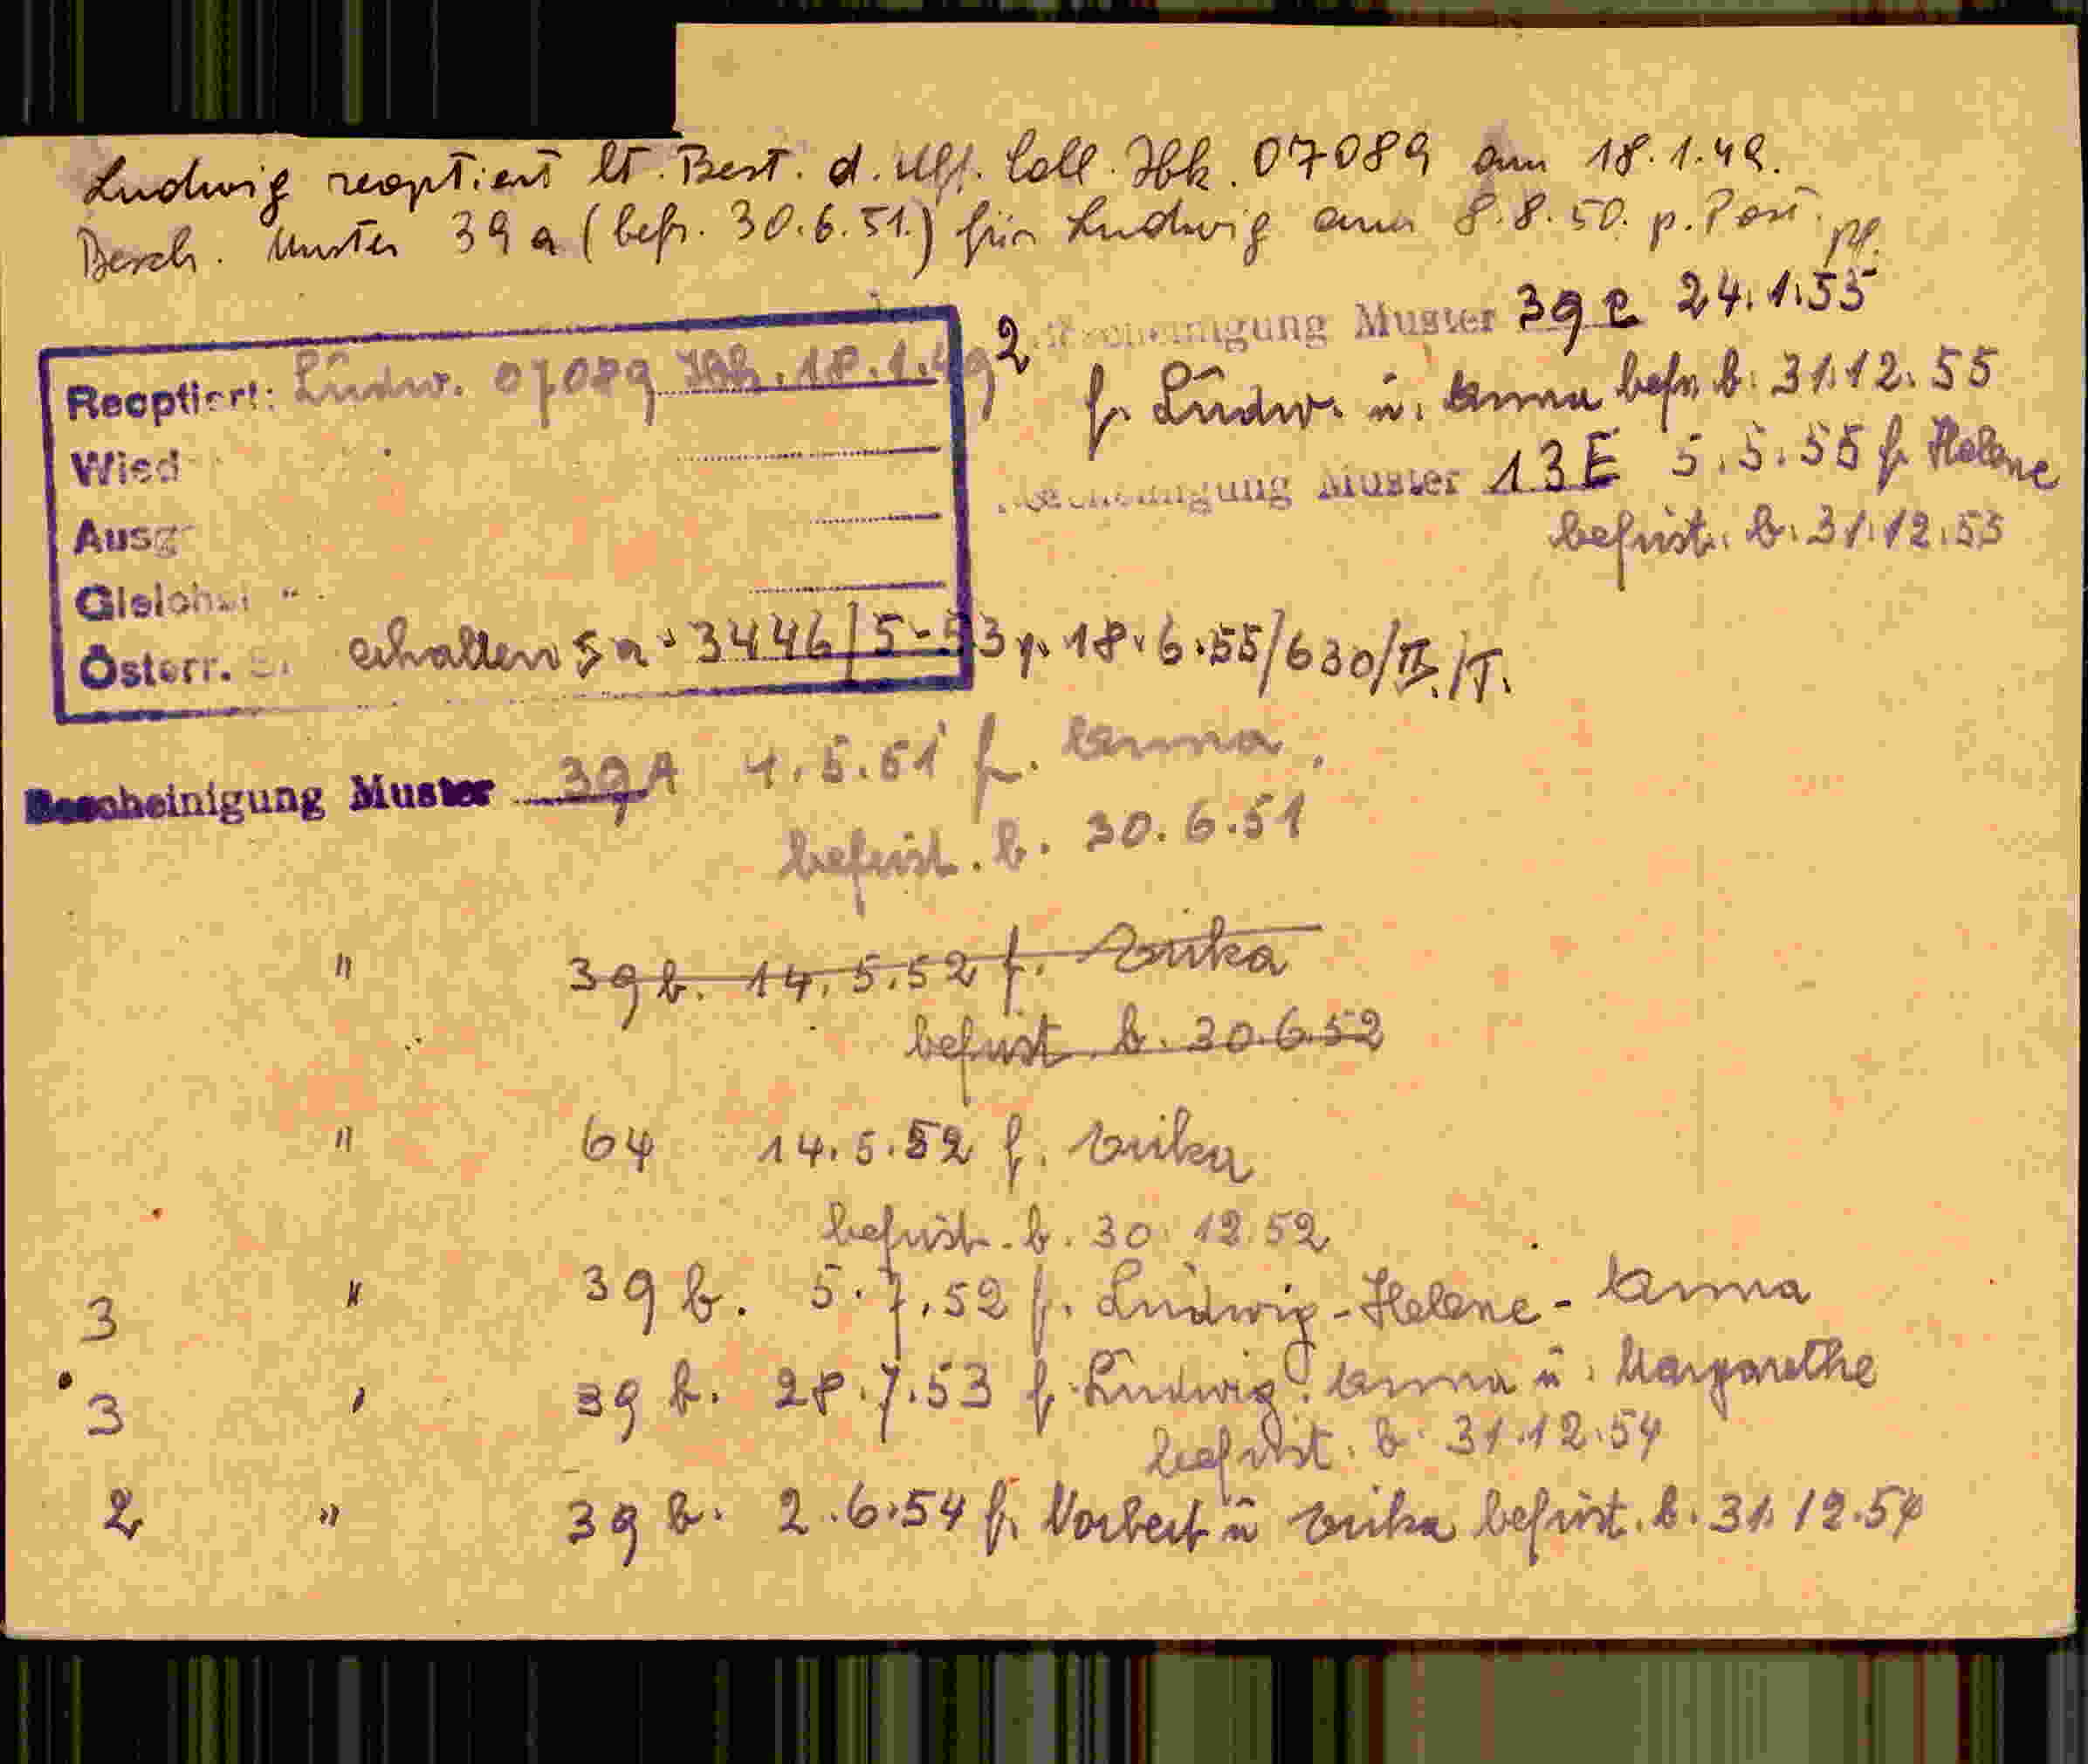 Ludwig reoptiert lt. Best. d. Uff. Coll. Ibk. 07089 am 18.1.49.
Besch. Muster 39 a (befr. 30.6.51.) für Ludwig am 8.8.50. p. Post.
Reoptiert: Ludw. 07089 Ibk. 18.1.49
Wied
Ausg
Gleich
Österr. S. erhalten 3446/5-53 v. 18.6.55/630/II./I.
2 Bescheinigung Muster 39 c 24.1.55
f. Ludw. u. Anna befr. b. 31.12.55
Bescheinigung Muster 13E 5.5.55 f. Helene
befrist. b. 31.12.55
Bescheinigung Muster 39A 1.5.51 f. Anna.
befrist. b. 30.6.51
" 39 b. 14.5.52 f. Erika
befrist. b. 30.6.52
" 64 14.5.52 f. Erika
befrist. b. 30.12.52
3 " 39 b. 5.7.52 f. Ludwig-Helene-Anna
3 " 39 b. 28.7.53 f. Ludwig. Anna u. Margarethe
befrist. b. 31.12.54
2 " 39 b. 2.6.54 f. Norbert u Erika befrist. b. 31.12.54